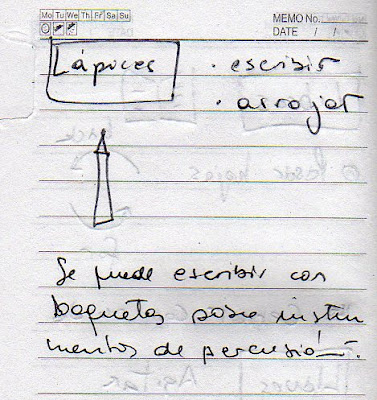 Mo Tu We Th Fr Sa Su
MEMO No.
DATE / /
Lápices
· escribir
· arrojar
Se puede escribir con
baquetas sobre instru
mentos de percusión.